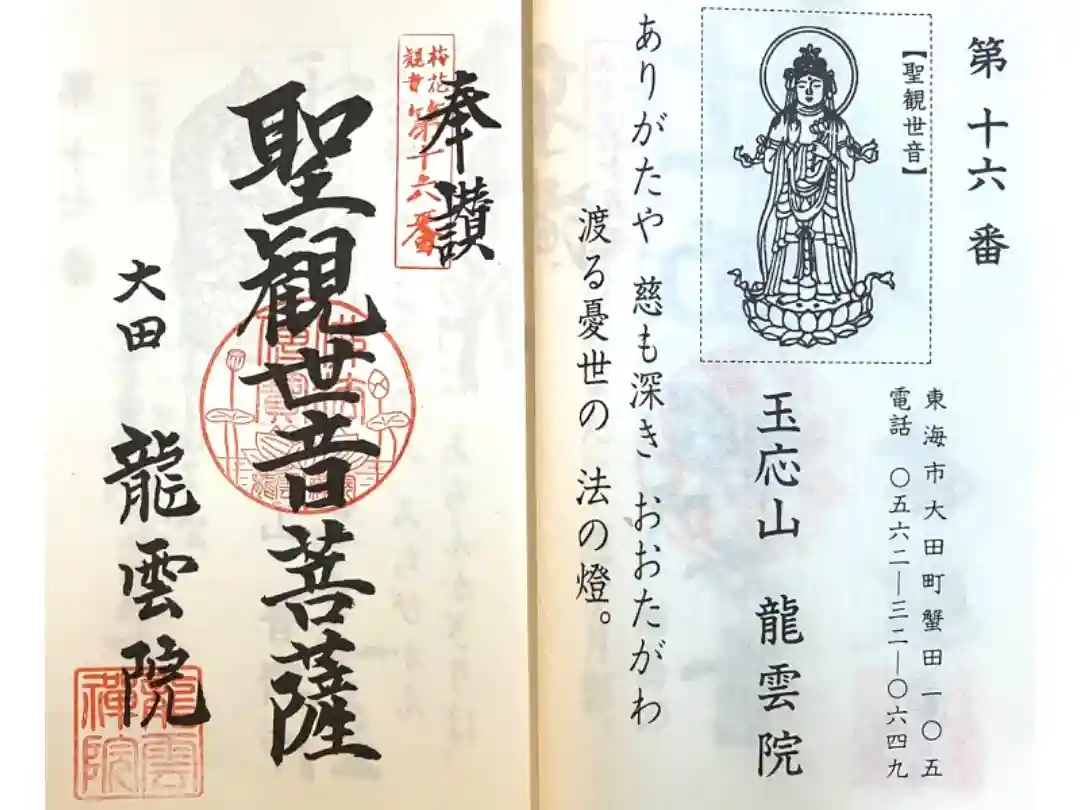 第十六番
【聖観世音】
東海市大田町蟹田一〇五
電話 〇五六二―三二―〇六四九
玉応山 龍雲院
ありがたや 慈も深き おおたがわ
渡る憂世の 法の燈。
奉讃
梅花
観世
第十六番
聖観世音菩薩
大田 龍雲院
龍雲
禅院